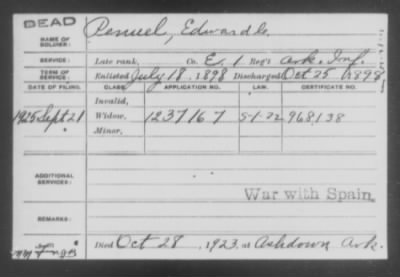 DEAD
NAME OF SOLDIER: Penuel, Edward G.
SERVICE: Late rank, Co. E, 1 Reg't Ark. Inf.
TERM OF SERVICE: Enlisted July 18, 1898 Discharged Oct 25 1898
DATE OF FILING. CLASS. APPLICATION NO. LAW. CERTIFICATE NO.
Invalid,
1925 Sept 21 Widow, 1237167 5-1-22 968,138
Minor,
ADDITIONAL SERVICES:
War with Spain.
REMARKS:
Died Oct 28, 1923, at Ashdown Ark.